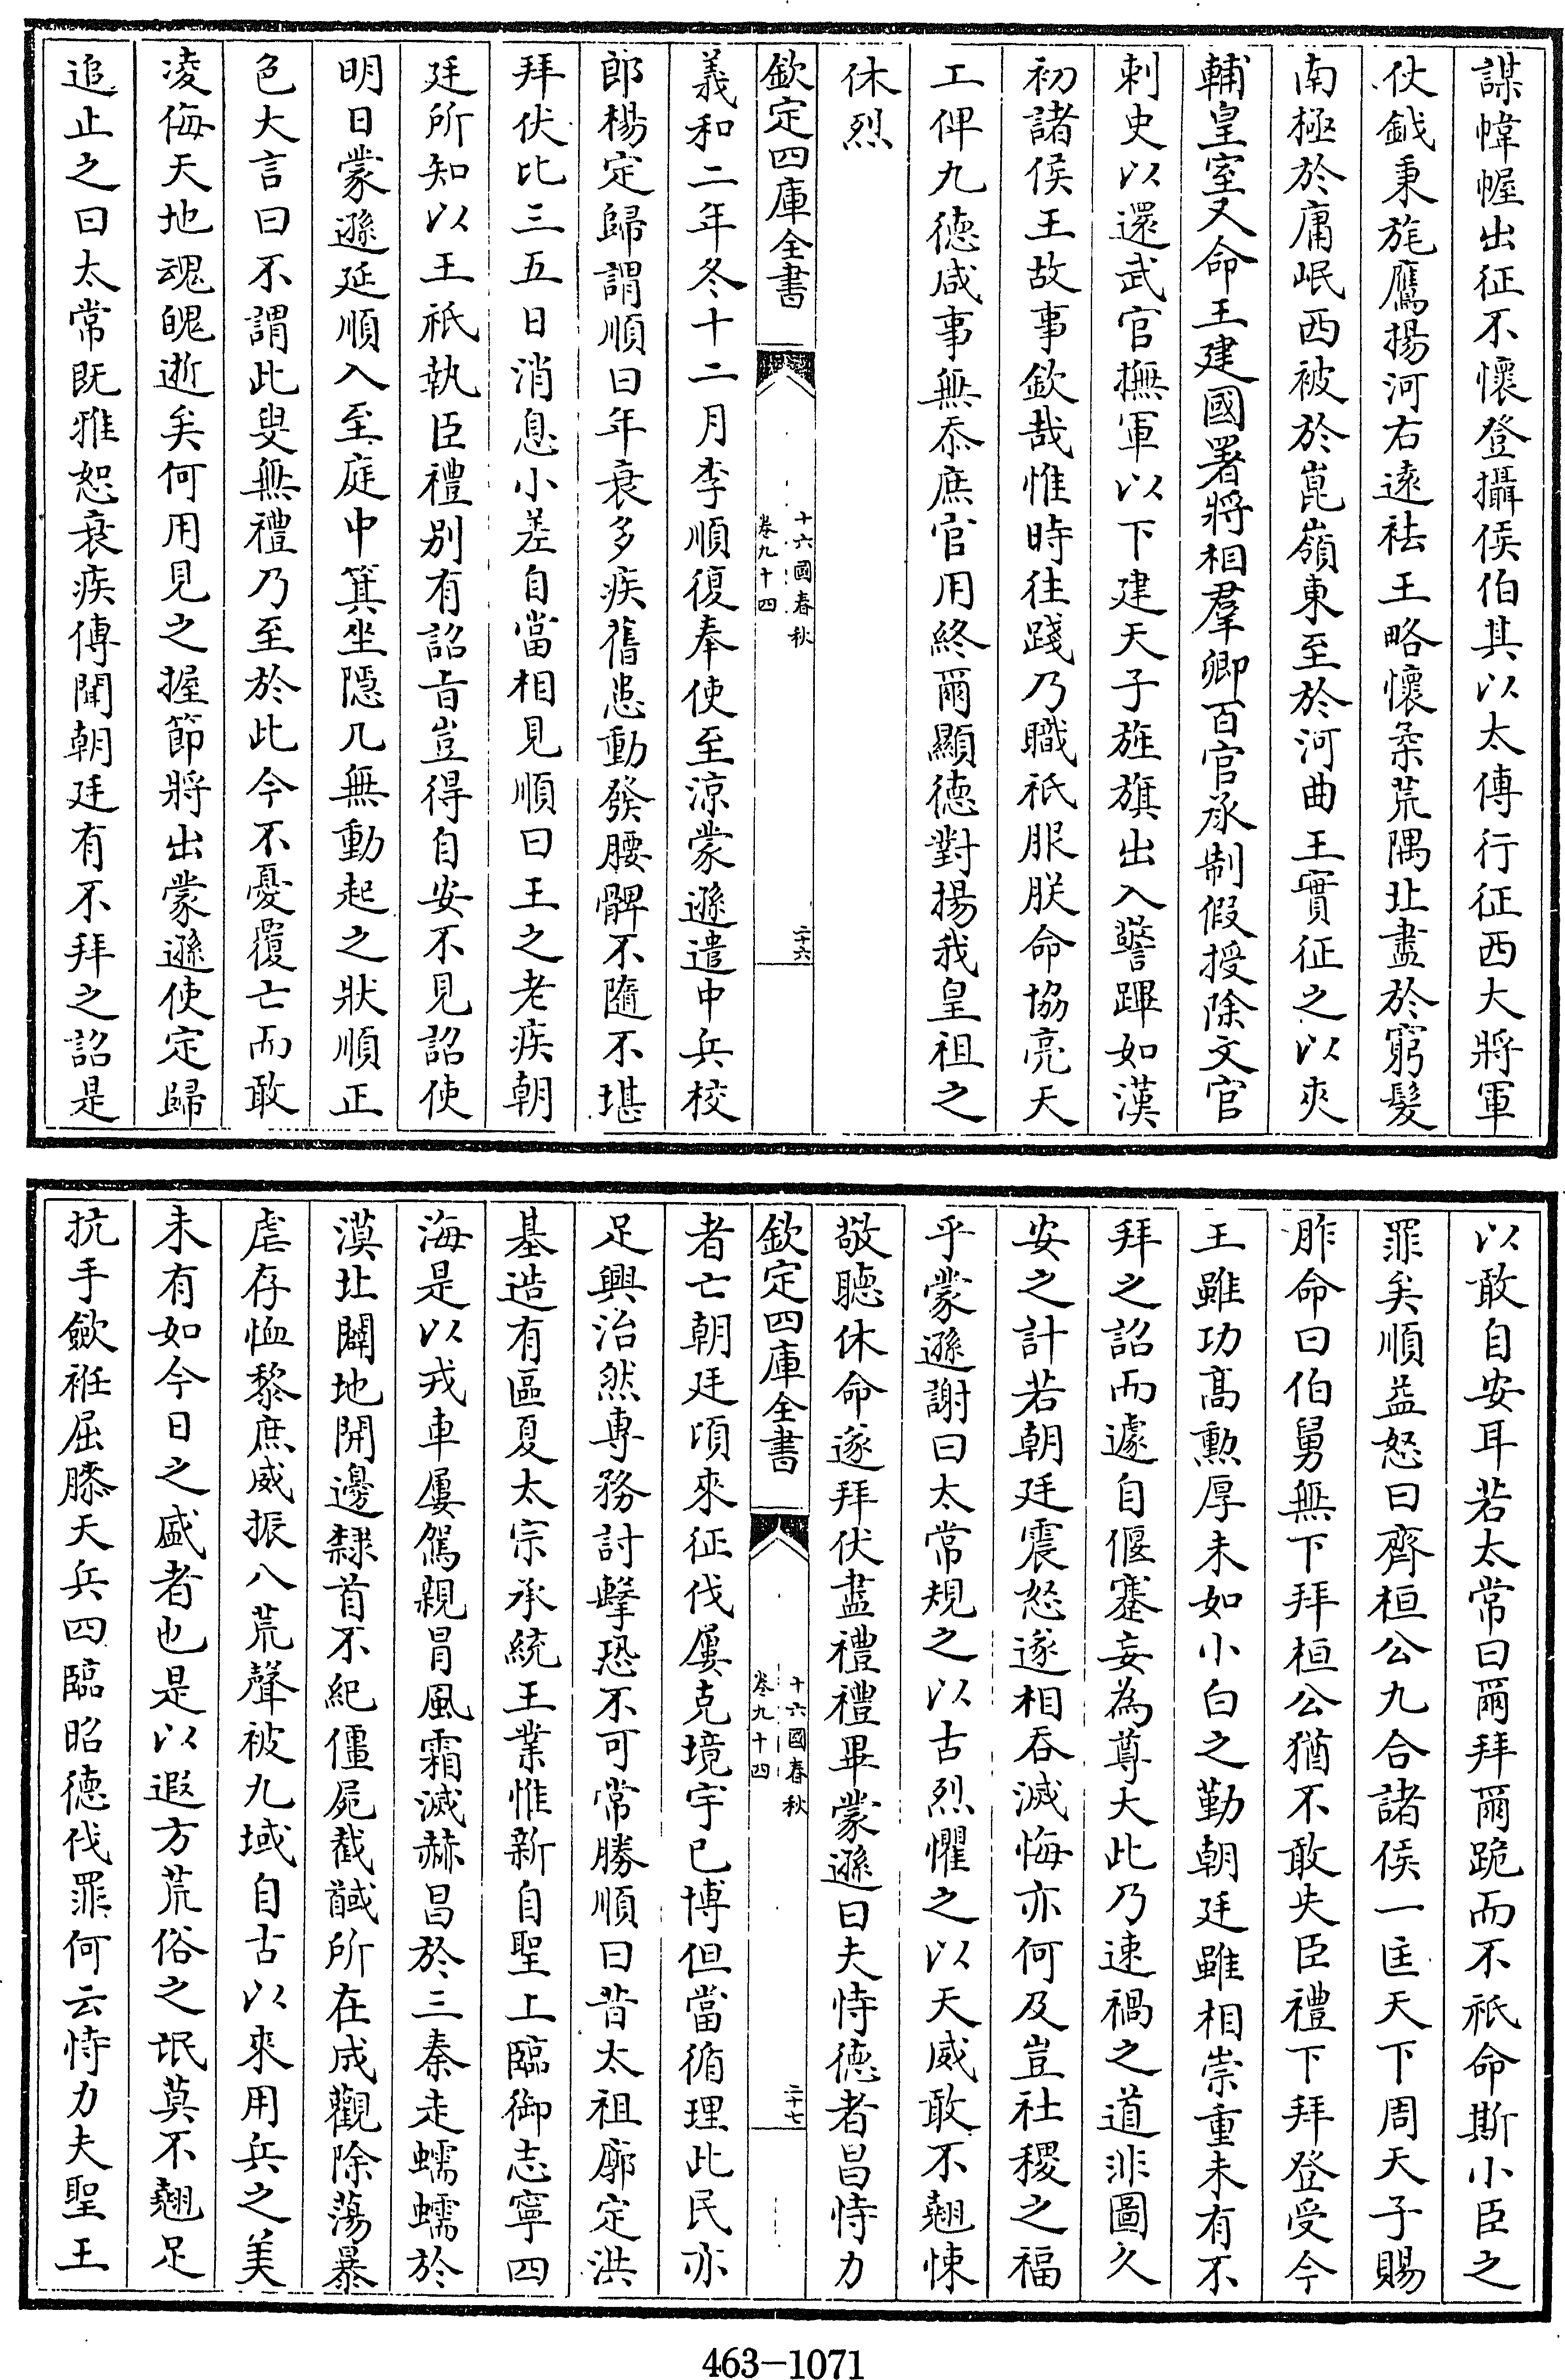 謀幃幄出征不懷登攝侯伯其以太傅行征西大將軍
仗鉞秉旄鷹揚河右遠祛王略懷柔荒隅北盡於窮髮
南極於庸岷西被於崑嶺東至於河曲王實征之以夾
輔皇室又命王建國署將相羣卿百官承制假授除文官
刺史以還武官撫軍以下建天子旌旗出入警蹕如漢
初諸侯王故事欽哉惟時往踐乃職祇服朕命協亮天
工俾九德咸事無忝庶官用終爾顯德對揚我皇祖之
休烈
欽定四庫全書
十六國春秋
卷九十四
二十六
義和二年冬十二月李順復奉使至涼蒙遜遣中兵校
郎楊定歸謂順曰年衰多疾舊患動發腰髀不隨不堪
拜伏比三五日消息小差自當相見順曰王之老疾朝
廷所知以王祇執臣禮別有詔旨豈得自安不見詔使
明日蒙遜延順入至庭中箕坐隱几無動起之狀順正
色大言曰不謂此叟無禮乃至於此今不憂覆亡而敢
凌侮天地魂魄逝矣何用見之握節將出蒙遜使定歸
追止之曰太常既雅恕衰疾傅聞朝廷有不拜之詔是
以敢自安耳若太常曰爾拜爾跪而不祇命斯小臣之
罪矣順益怒曰齊桓公九合諸侯一匡天下周天子賜
胙命曰伯舅無下拜桓公猶不敢失臣禮下拜登受今
王雖功高勲厚未如小白之勤朝廷雖相崇重未有不
拜之詔而遽自偃蹇妄為尊大此乃速禍之道非圖久
安之計若朝廷震怒遂相吞滅悔亦何及豈社稷之福
乎蒙遜謝曰太常規之以古烈懼之以天威敢不翹悚
敬聽休命遂拜伏盡禮禮畢蒙遜曰夫恃德者昌恃力
欽定四庫全書
十六國春秋
卷九十四
二十七
者亡朝廷頃來征伐屢克境宇已博但當循理此民亦
足興治然專務討擊恐不可常勝順曰昔太祖廓定洪
基造有區夏太宗承統王業惟新自聖上臨御志寧四
海是以戎車屢駕親冒風霜滅赫昌於三秦走蠕蠕於
漠北闢地開邊隸首不紀僵屍截馘所在成觀除蕩暴
虐存恤黎庶威振八荒聲被九域自古以來用兵之美
未有如今日之盛者也是以遐方荒俗之氓莫不翹足
抗手歛袵屈膝天兵四臨昭德伐罪何云恃力夫聖王
463-1071